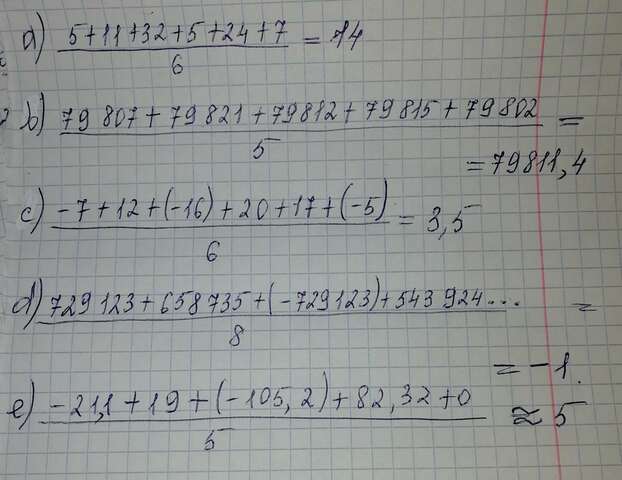 a) 5+11+32+5+24+7
6
= 14
b) 79 807 + 79 821 + 79812 + 79 815 + 79 802
5
=
= 79811,4
c) -7 + 12 + (-16) + 20 + 17 + (-5)
6
= 3,5
d) 729 123 + 658 735 + (-729 123) + 543 924...
8
=
= -1.
e) -21,1 + 19 + (-105,2) + 82,32 + 0
5
≈ 5